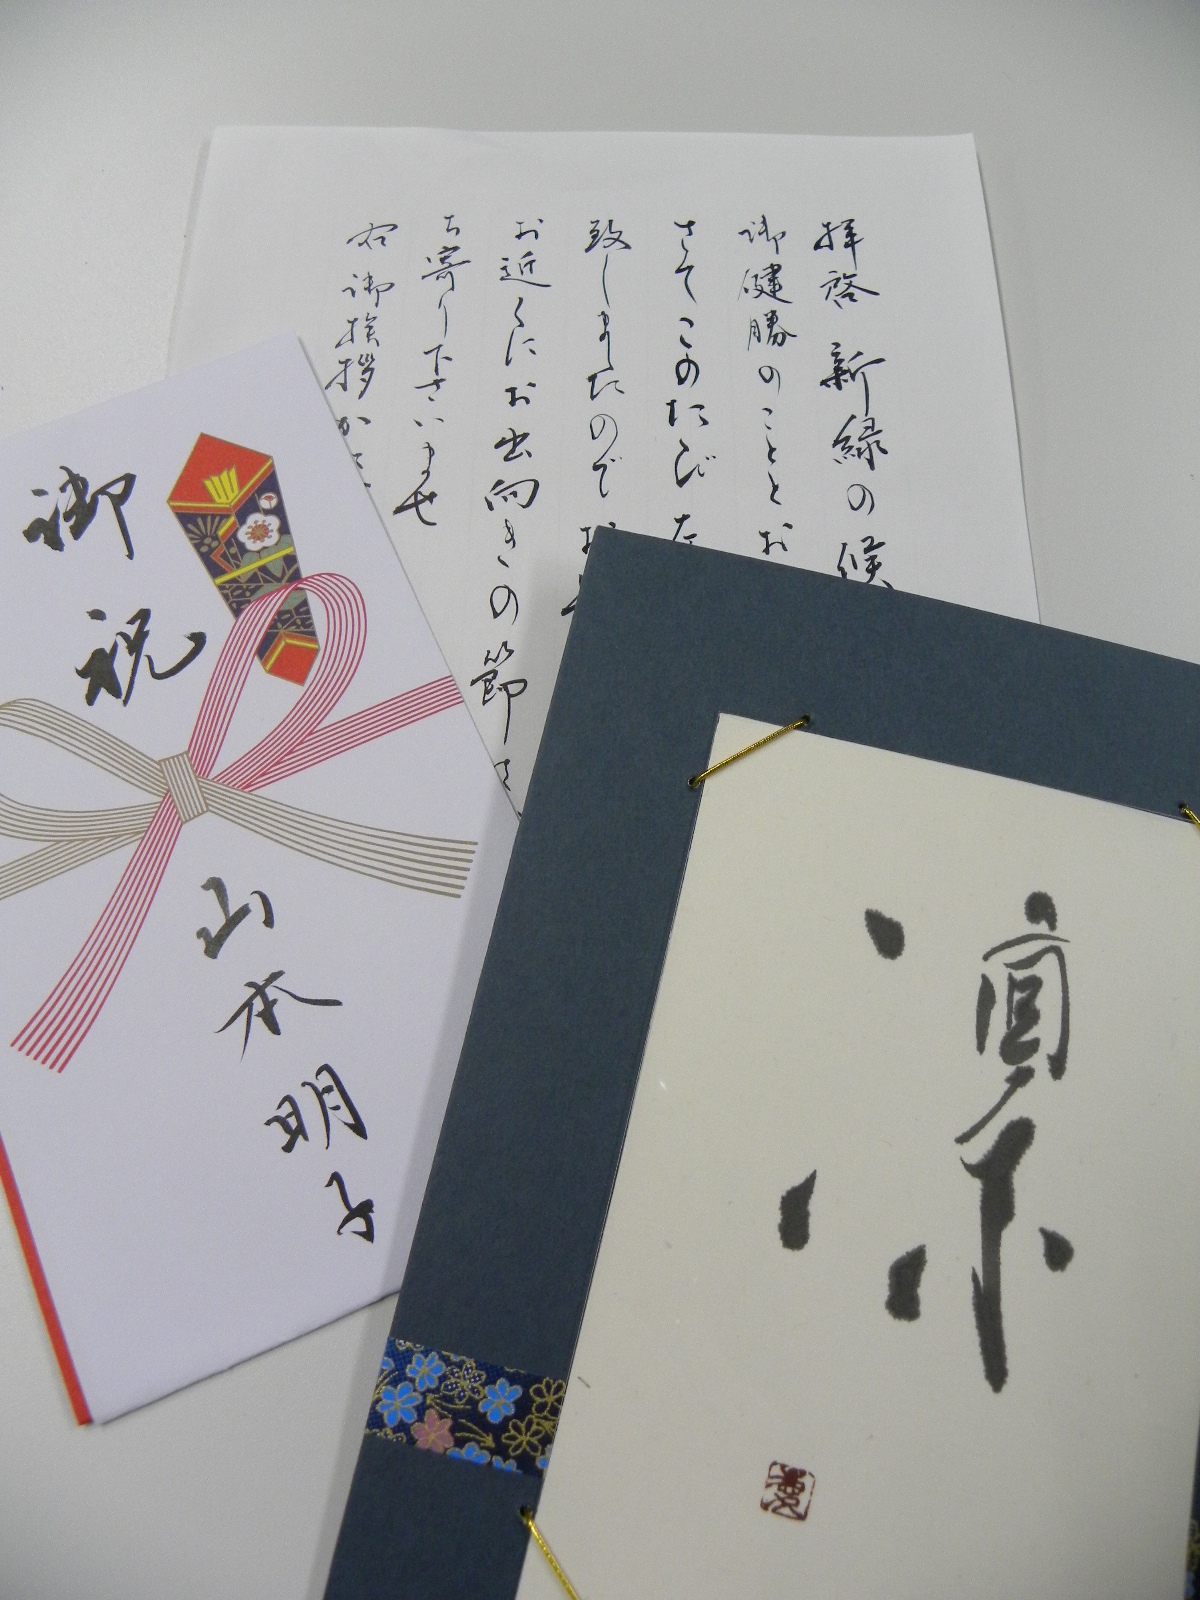 拝啓 新緑の候
御健勝のこととお
さてこのたび左
致しましたのでお
お近くにお出向きの節は
ち寄り下さいませ
右御挨拶かた
御祝
山本明子
凜